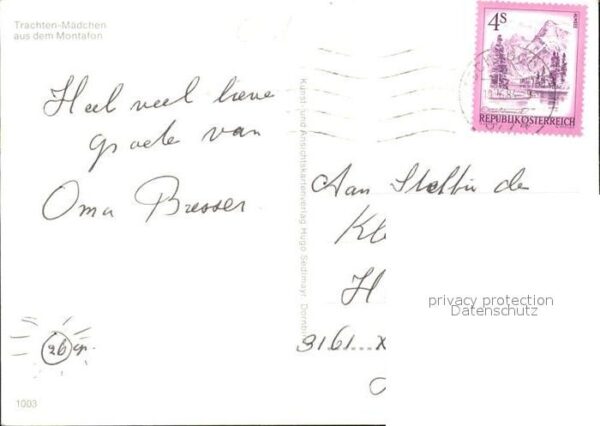 Trachten-Mädchen
aus dem Montafon
Heel veel lieve
groeten van
Oma Bresser.
26 gr.
1003
Kunst- und Ansichtskartenverlag Hugo Sedlmayr, Dornbirn
4S
ALMSEE
REPUBLIK ÖSTERREICH
Aan
de
Kl
H
3161
privacy protection
Datenschutz